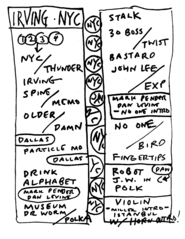 IRVING · NYC
1 2 3 4
NYC
/ THUNDER
IRVING
SPINE / MEMO
OLDER / DAMN
DALLAS
PARTICLE MO
DALLAS
DRINK
ALPHABET
MARK PENDER
DAN LEVINE
MUSEUM
DR WORM / POLKA
STALK
30 BOSS
/ TWIST
BASTARD
JOHN LEE /
EXP
MARK PENDER
DAN LEVINE
- NO ONE INTRO
NO ONE /
BIRD
FINGERTIPS
ROBOT
J.W. IN
POLK
VIOLIN
- MILLER INTRO -
ISTANBUL
W/ HORN INTRO!